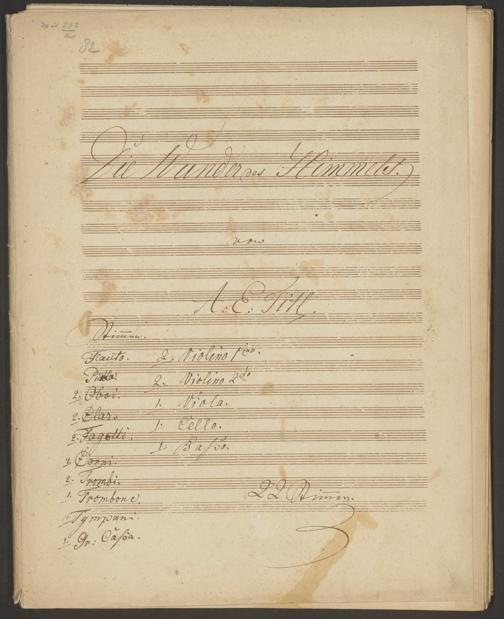 82
Die Wunder des Himmels.
von
A: E: Titl.
Stimmen.
Flauto.
2. Oboi.
2. Clar.
2. Fagotti.
Corni.
2. Trombi.
1. Trombone.
Tympani.
1. Gr: Caßa.
2. Violino 1mo.
2. Violino 2do
1. Viola.
1. Cello.
1. Baßo.
22 Stimen.